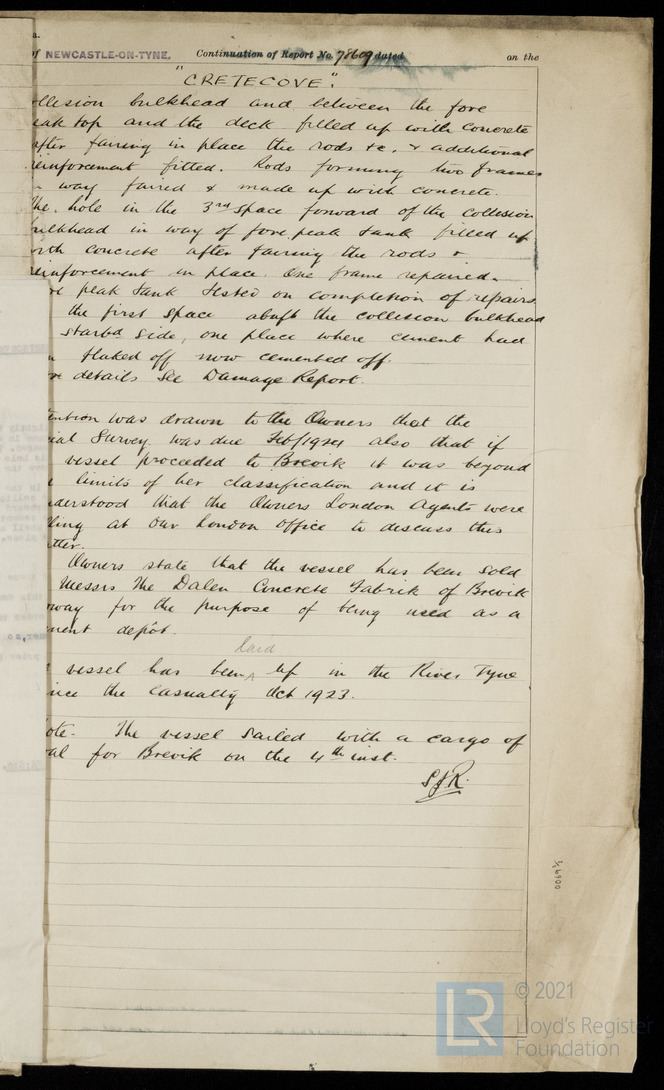 a.
of NEWCASTLE-ON-TYNE. Continuation of Report No. 78609 dated on the
"CRETECOVE".
ollision bulkhead and between the fore
eak top and the deck filled up with concrete
after fairing in place the rods &c. & additional
reinforcement fitted. Rods forming two frames
n way faired & made up with concrete.
The hole in the 3rd space forward of the collision
bulkhead in way of fore peak tank filled up
with concrete after fairing the rods &
reinforcement in place. One frame repaired.
re peak tank tested on completion of repairs.
the first space abaft the collision bulkhead
starbd side, one place where cement had
n flaked off now cemented off.
or details See Damage Report.
tention was drawn to the Owners that the
ial Survey was due Feb/1924 also that if
vessel proceeded to Brevik it was beyond
limits of her classification and it is
derstood that the Owners London Agents were
ling at our London Office to discuss this
tter.
Owners state that the vessel has been sold
Messrs The Dalen Concrete Fabrik of Brevik
rway for the purpose of being used as a
ment depôt.
laid
vessel has been ^ up in the River Tyne
ince the casualty Oct 1923.
ote. The vessel sailed with a cargo of
al for Brevik on the 4th inst.
SJR.
© 2021
LR
Lloyd's Register
Foundation